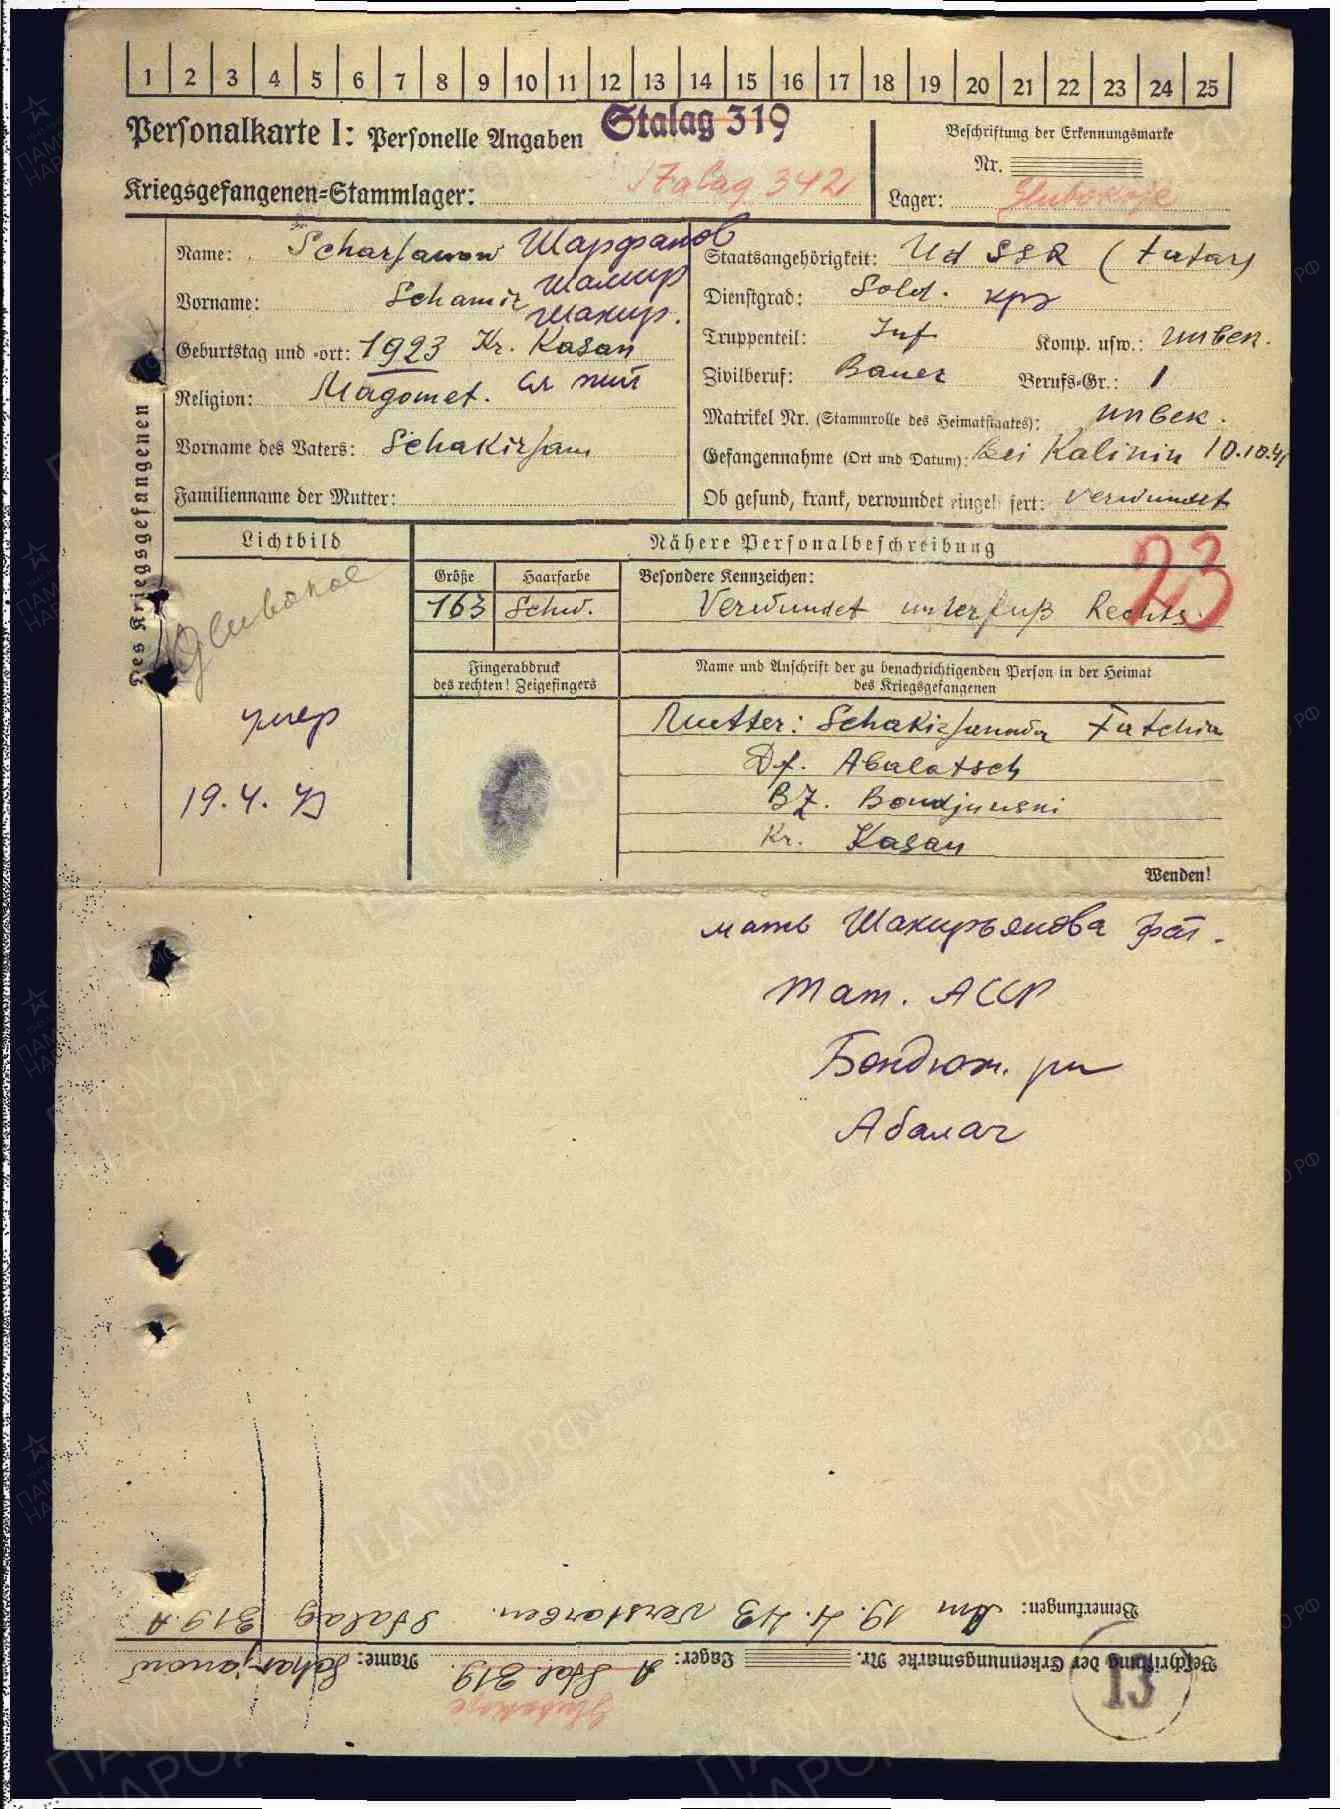 1 2 3 4 5 6 7 8 9 10 11 12 13 14 15 16 17 18 19 20 21 22 23 24 25
Personalkarte I: Personelle Angaben Stalag 319
Beschriftung der Erkennungsmarke
Nr.
Kriegsgefangenen-Stammlager: Stalag 342
Lager: Glubokoje
Des Kriegsgefangenen
Name: Scharjanow Шарфанов
Vorname: Schamir Шамир
Шакир.
Geburtstag und -ort: 1923 Kr. Kasan
Religion: Magomet.
Vorname des Vaters: Schakirjan
Familienname der Mutter:
Staatsangehörigkeit: UdSSR (tatar)
Dienstgrad: Sold. крг
Truppenteil: Inf Komp. usw.: unbek.
Zivilberuf: Bauer Berufs-Gr.: 1
Matrikel Nr. (Stammrolle des Heimatstaates): unbek.
Gefangennahme (Ort und Datum): bei Kalinin 10.10.41
Ob gesund, krank, verwundet eingeliefert: verwundet
Lichtbild
Nähere Personalbeschreibung
Größe Haarfarbe Besondere Kennzeichen:
163 Schw. Verwundet unterfuß Rechts.
23
Glubokoe
умер
19.4.43
Fingerabdruck
des rechten! Zeigefingers
Name und Anschrift der zu benachrichtigenden Person in der Heimat
des Kriegsgefangenen
Mutter: Schakirjanowa Fatchia
Df. Abalatsch
BZ. Bondjunski
Kr. Kasan
Wenden!
мать Шакирьянова Фат.
Тат. АССР
Бондюж. рн
Абалач
Bemerkungen: Am 19.4.43 verstorben. Stalag 319 A
Beschriftung der Erkennungsmarke Nr. Lager: A Stal 319. Name: Scharjanow
Glubokoje
13